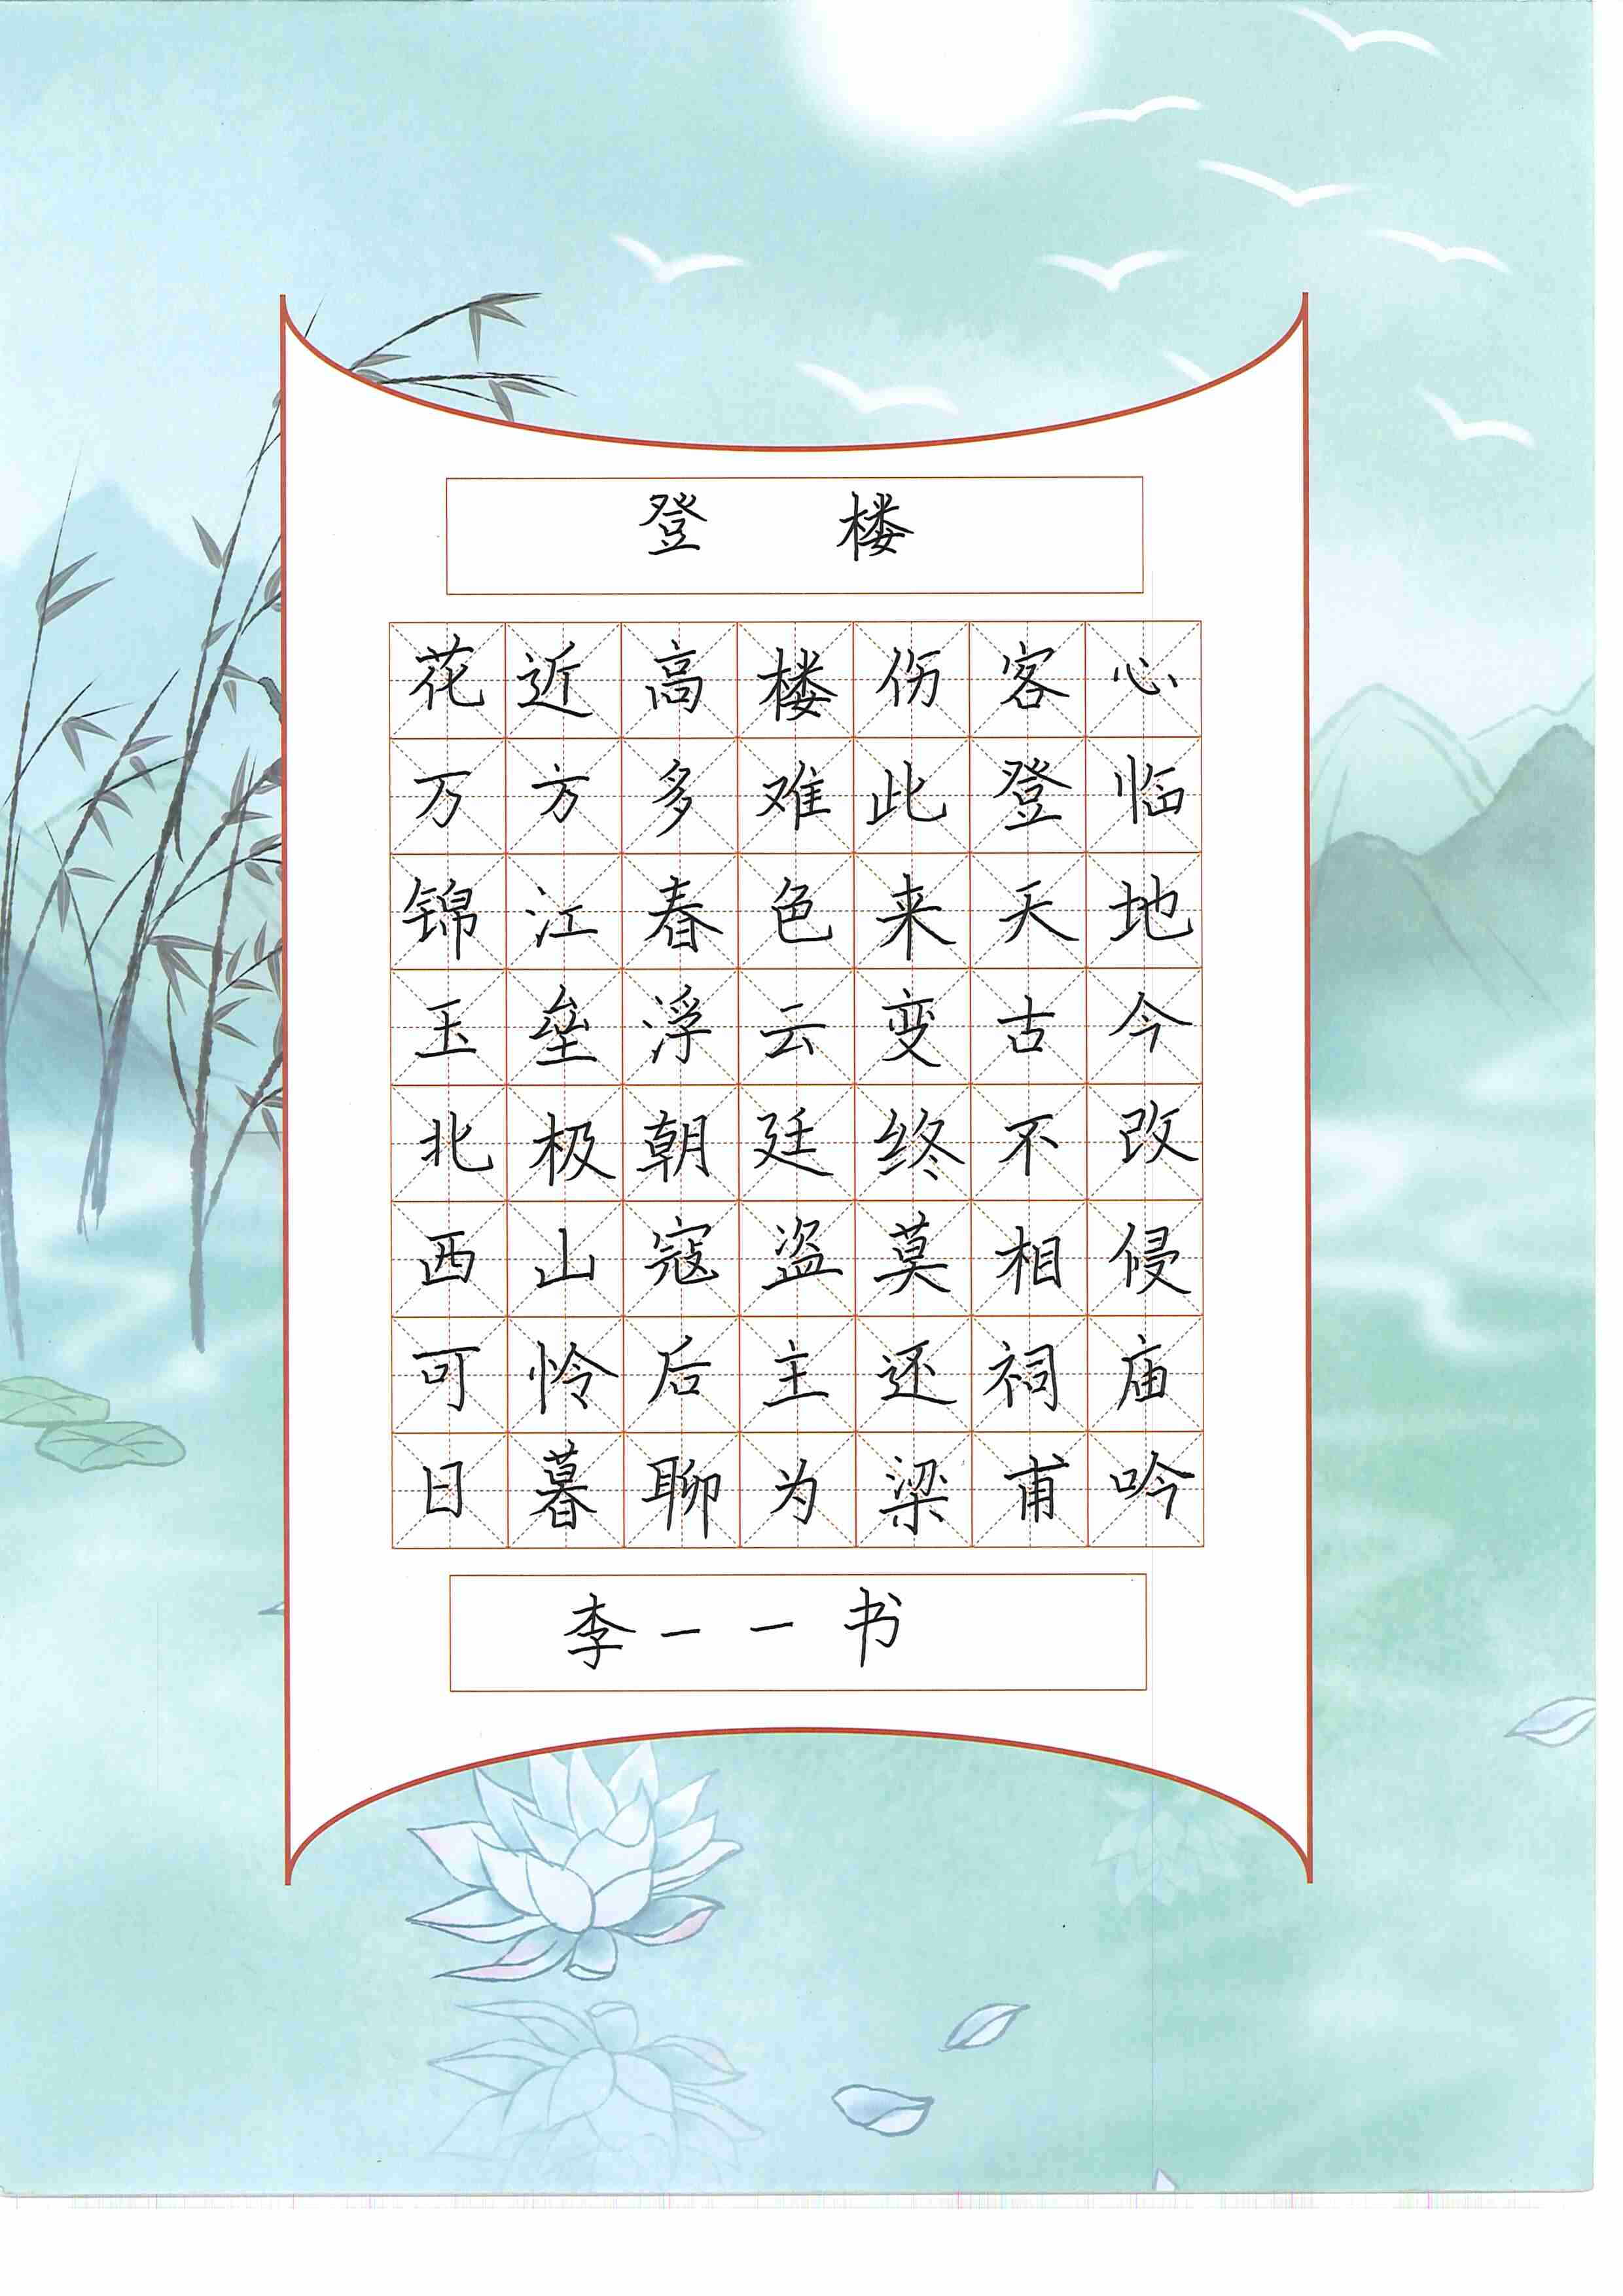 登 楼
花近高楼伤客心
万方多难此登临
锦江春色来天地
玉垒浮云变古今
北极朝廷终不改
西山寇盗莫相侵
可怜后主还祠庙
日暮聊为梁甫吟
李一一书